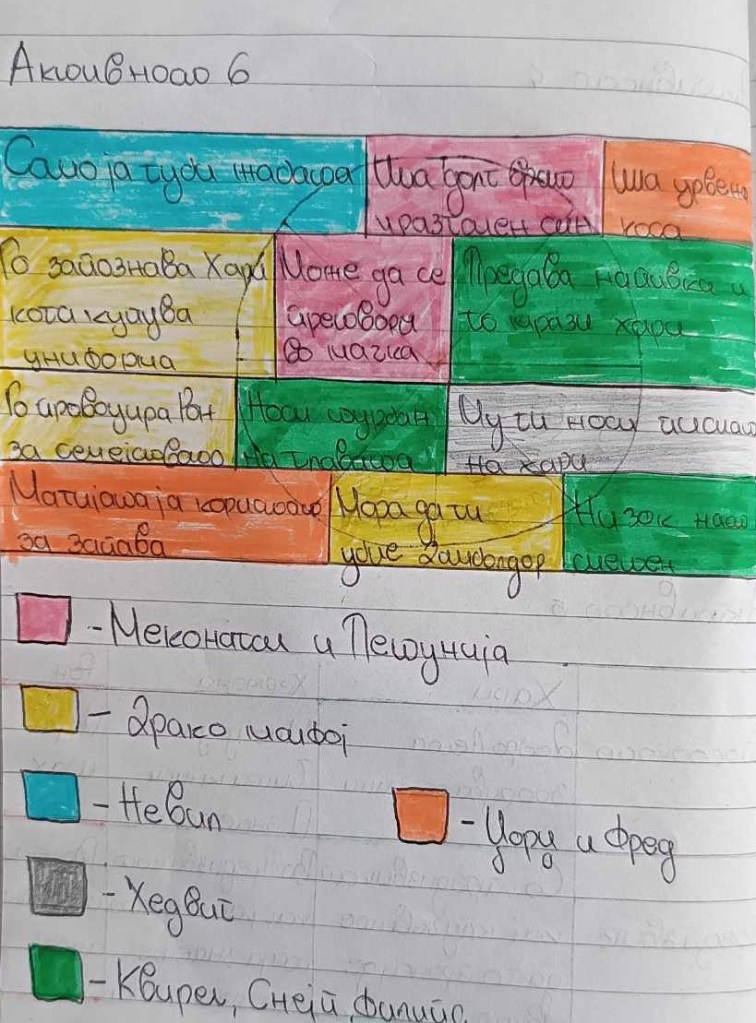 Активност 6
Само ја губи жабата
Има долг врат
и разгален син
Има црвена
коса
Го запознава Хари
кога купува
униформа
Може да се
претвори
во мачка
Предава напивки и
го мрази хари
Го провоцира Рон
за семејството
Носи турбан
на главата
Му ги носи писмата
на хари
Магијата ја користат
за забава
Мора да ги
убие Дамблдор
Низок наст
смешен
- Меконагал и Петунија
- Драко малфој
- Невил
- Џорџ и Фред
- Хедвиг
- Квирел, Снејп, филипс